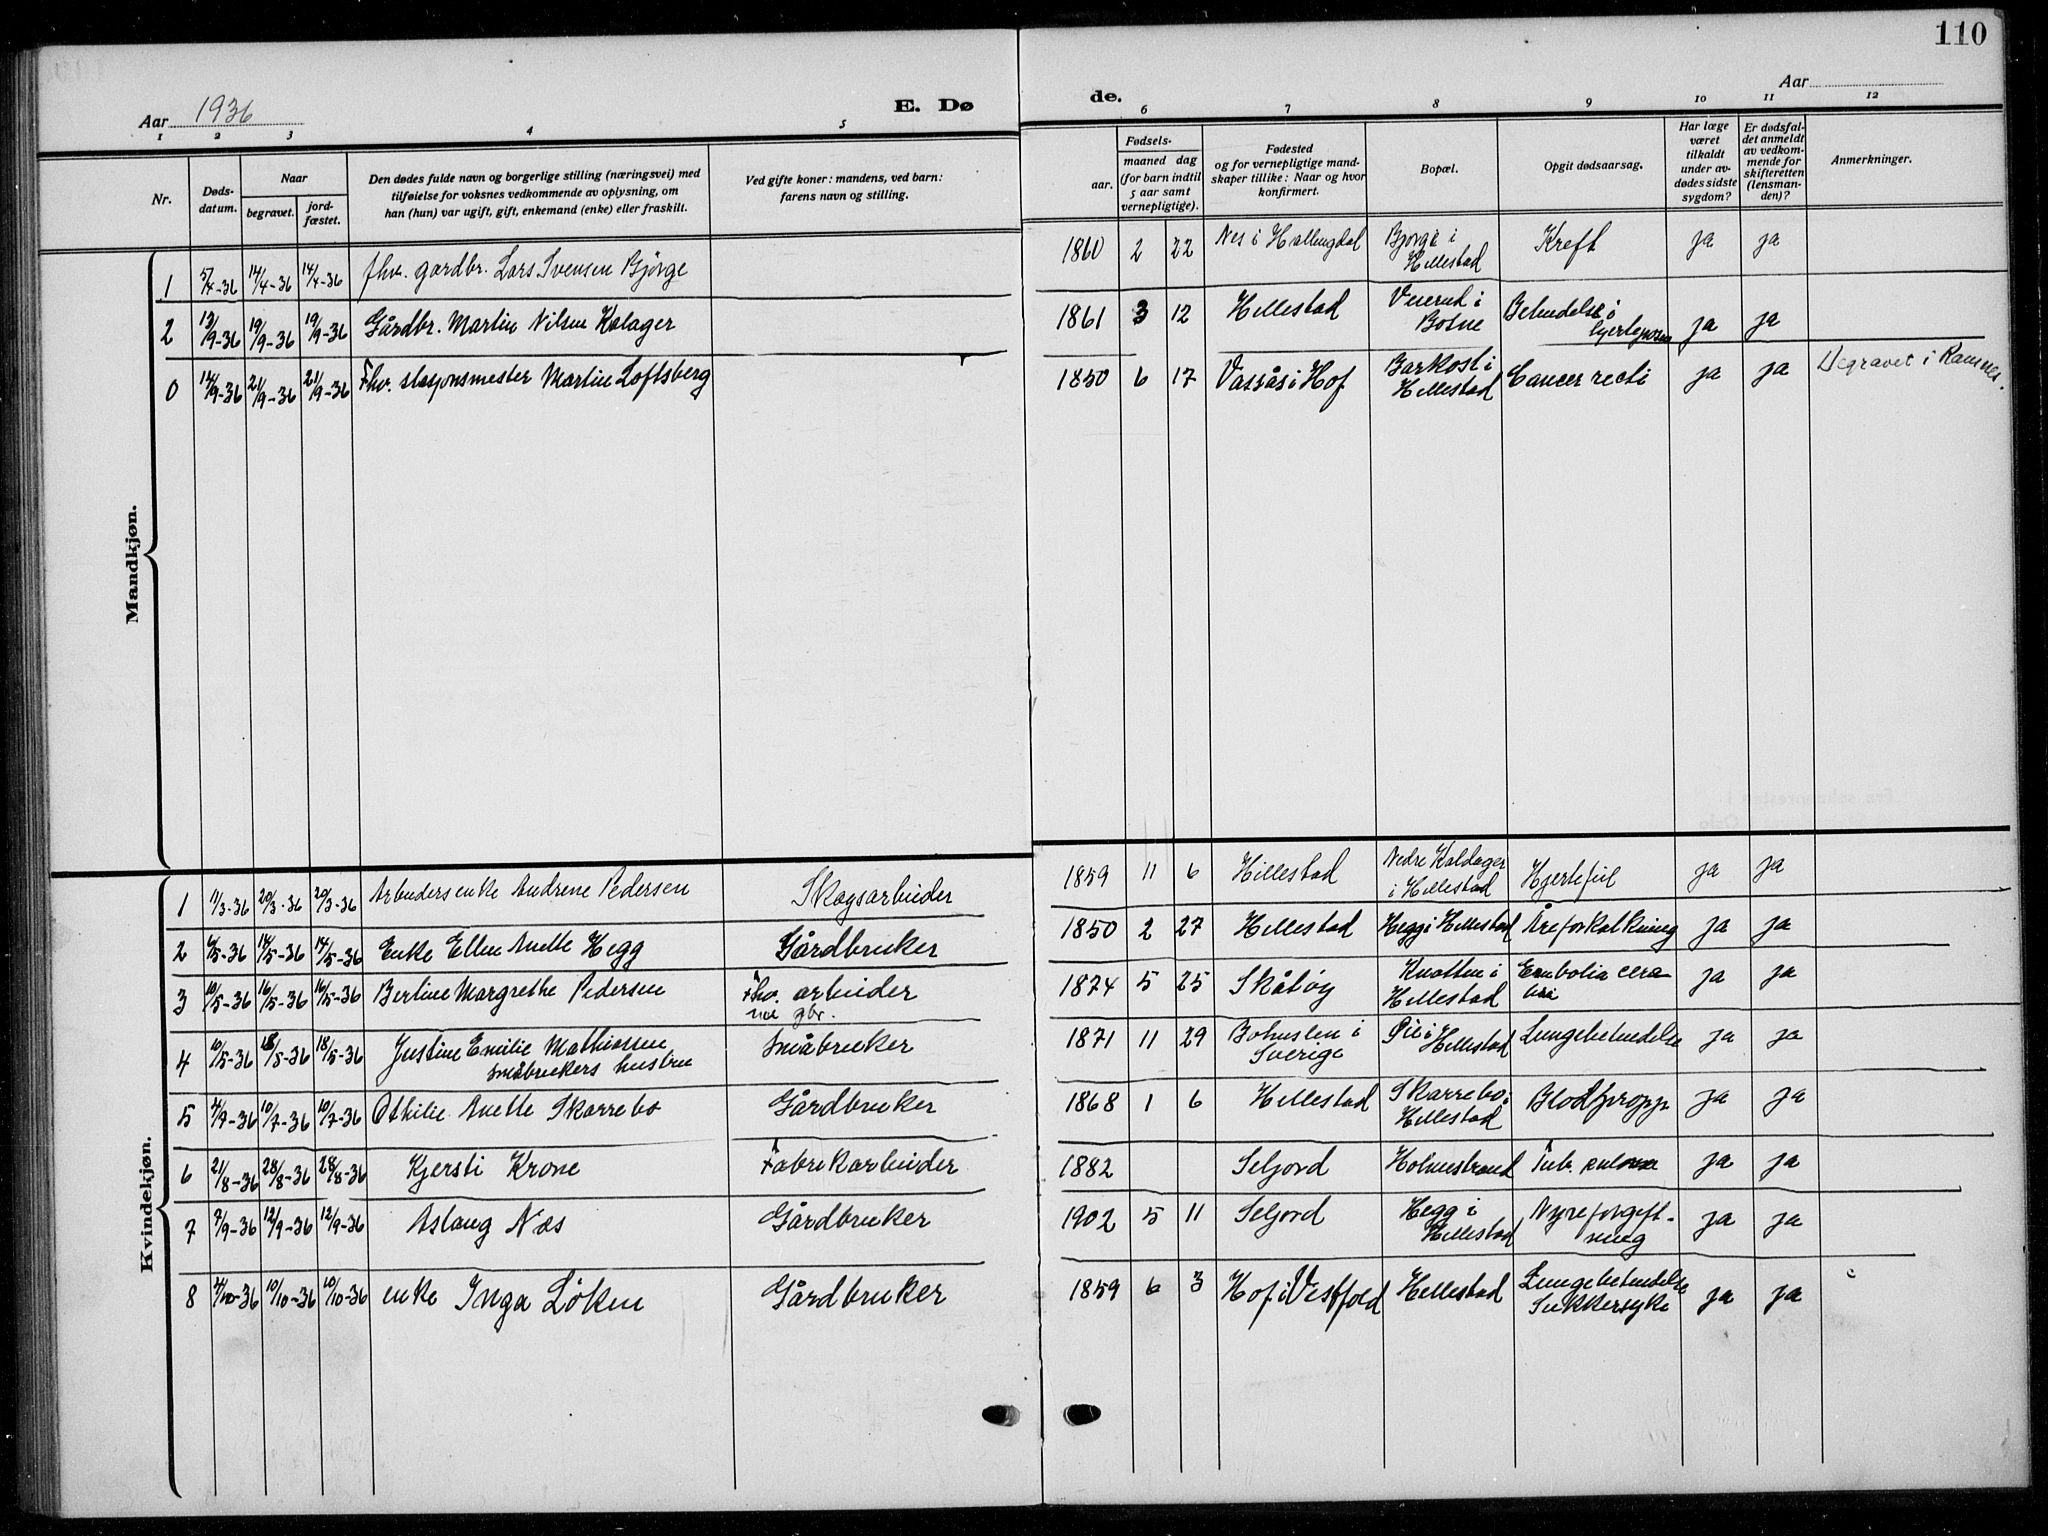 110
Aar 1936
E. Dø
de.
Aar
1 2 3 4 5 6 7 8 9 10 11 12
Nr.
Døds-
datum.
Naar
begravet.
jord-
fæstet.
Den dødes fulde navn og borgerlige stilling (næringsvei) med
tilføielse for voksnes vedkommende av oplysning, om
han (hun) var ugift, gift, enkemand (enke) eller fraskilt.
Ved gifte koner: mandens, ved barn:
farens navn og stilling.
Fødsels-
aar.
maaned dag
(for barn indtil
5 aar samt
vernepligtige).
Fødested
og for vernepligtige mand-
skaper tillike: Naar og hvor
konfirmert.
Bopæl.
Opgit dødsaarsag.
Har læge
været
tilkaldt
under av-
dødes sidste
sygdom?
Er dødsfal-
det anmeldt
av vedkom-
mende for
skifteretten
(lensman-
den)?
Anmerkninger.
Mandkjøn.
1 5/4-36 14/4-36 14/4-36 fhv. gardbr. Lars Svensen Bjørge 1860 2 22 Nes i Hallingdal Bjørge i
Hillestad Kreft ja ja
2 13/9-36 19/9-36 19/9-36 Gårdbr. Martin Nilsen Kalager 1861 3 12 Hillestad i
Botne Betendelse i
hjerteposen ja ja
0 14/9-36 21/9-36 21/9-36 Fhv. stasjonsmester Martin Loftsberg 1850 6 17 Vassås i Hof Barkost i
Hillestad Cancer recti ja ja Begravet i Ramnes.
Kvindekjøn.
1 11/3-36 20/3-36 20/3-36 Arbeidersenke Andrene Pedersen Skogsarbeider 1859 11 6 Hillestad Nedre Kaldager
i Hillestad Hjertefeil ja ja
2 6/5-36 14/5-36 14/5-36 Enke Ellen Anette Hegg Gårdbruker 1850 2 27 Hillestad Hegg i Hillestad Åreforkalkning ja ja
3 10/5-36 16/5-36 16/5-36 Berline Margrethe Pedersen Fhv. arbeider
nu gbr. 1874 5 25 Skåtøy Knatten i
Hillestad Embolia cere
bri ja ja
4 10/5-36 18/5-36 18/5-36 Justine Emilie Mathiassen
småbrukers hustru Småbruker 1871 11 29 Bohuslen i
Sverige Øie i
Hillestad Lungebetendelse ja ja
5 4/7-36 10/7-36 10/7-36 Othilie Anette Skarrebo Gårdbruker 1868 1 6 Hillestad Skarrebo i
Hillestad Blodpropp ja ja
6 21/8-36 28/8-36 28/8-36 Kjersti Krone Fabrikarbeider 1882 Seljord Holmestrand Tub. ja ja
7 7/9-36 12/9-36 12/9-36 Aslaug Næs Gårdbruker 1902 5 11 Seljord Hegg i
Hillestad Nyreforgift-
ning ja ja
8 4/10-36 10/10-36 10/10-36 enke Inga Løken Gårdbruker 1859 6 3 Hof i Vestfold Hillestad Lungebetendelse
Sukkersyke ja ja